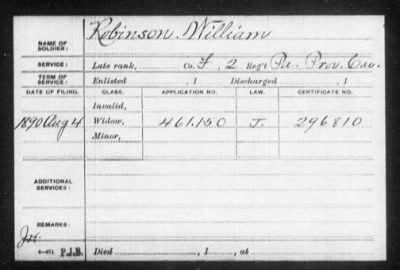 NAME OF SOLDIER: Robinson, William
SERVICE: Late rank, Co. F, 2 Reg't Pa. Prov. Cav.
TERM OF SERVICE: Enlisted , 1 Discharged , 1
DATE OF FILING. CLASS. APPLICATION NO. LAW. CERTIFICATE NO.
Invalid,
1890 Aug 4 Widow, 461.150 J. 296810
Minor,
ADDITIONAL SERVICES:
REMARKS:
6-071 P.J.B. Died , 1 , at